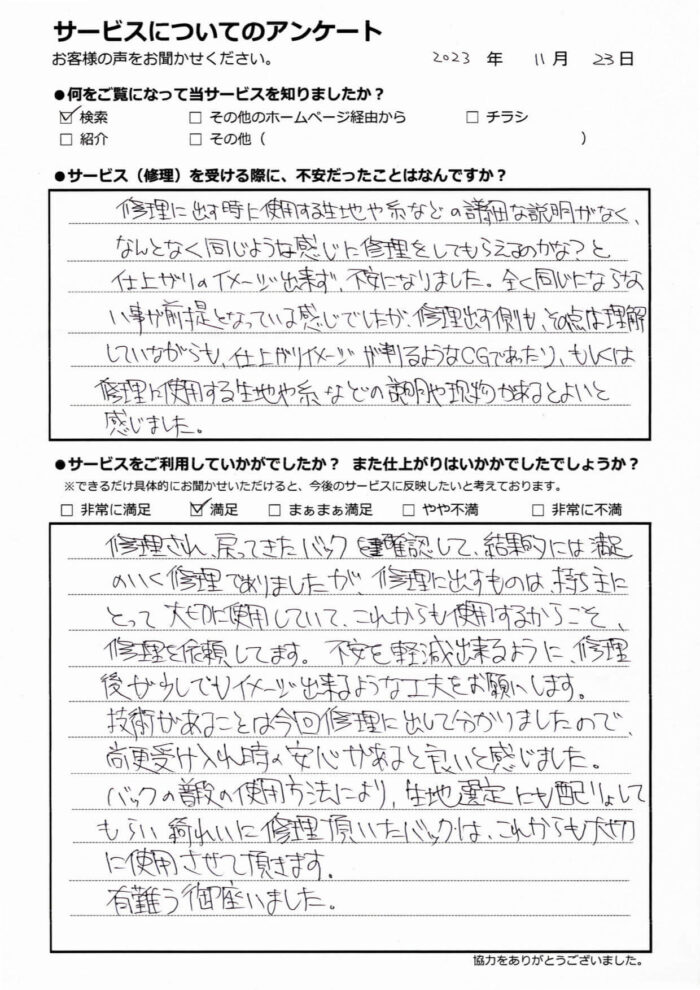 サービスについてのアンケート
お客様の声をお聞かせください。 2023 年 11月 23日
●何をご覧になって当サービスを知りましたか？
☑ 検索 □ その他のホームページ経由から □ チラシ
□ 紹介 □ その他（ ）
●サービス（修理）を受ける際に、不安だったことはなんですか？
修理に出す時に使用する生地や糸などの詳細な説明がなく、
なんとなく同じような感じに修理をしてもらえるのかな？と
仕上がりのイメージ出来ず、不安になりました。全く同じにならな
い事が前提となっている感じでしたが、修理出す側も、その点は理解
していながらも、仕上がりイメージが判るようなCGであったり、もしくは
修理に使用する生地や糸などの説明や現物があるとよいと
感じました。
●サービスをご利用していかがでしたか？ また仕上がりはいかかでしたでしょうか？
※できるだけ具体的にお聞かせいただけると、今後のサービスに反映したいと考えております。
□ 非常に満足 ☑ 満足 □ まぁまぁ満足 □ やや不満 □ 非常に不満
修理され、戻ってきたバック 確認して、結果的には満足
のいく修理でありましたが、修理に出すものは、持ち主に
とって大切に使用していて、これからも使用するからこそ、
修理を依頼してます。不安を軽減出来るように、修理
後が少しでもイメージ出来るような工夫をお願いします。
技術があることは今回修理に出して分かりましたので、
尚更受け入れ時の安心があると良いと感じました。
バックの普段の使用方法により、生地選定にも配りょして
もらい 綺れいに修理頂いたバックは、これからも大切
に使用させて頂きます。
有難う御座いました。
協力をありがとうございました。